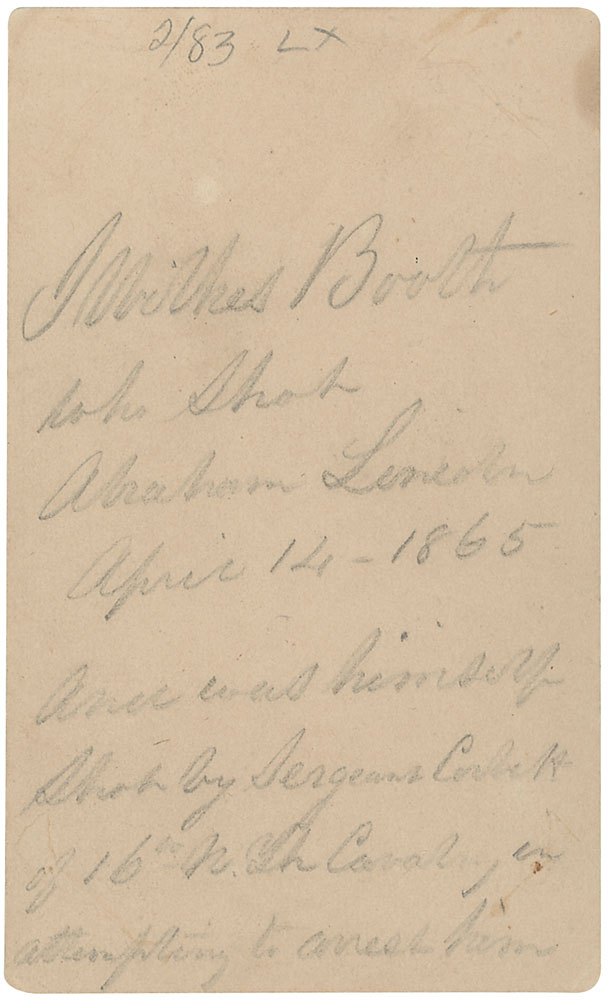 2/83 LX
J Wilkes Booth
who Shot
Abraham Lincoln
April 14 - 1865
And was himself
Shot by Sergeant Corbett
of 16th N. Cavalry, in
attempting to arrest him